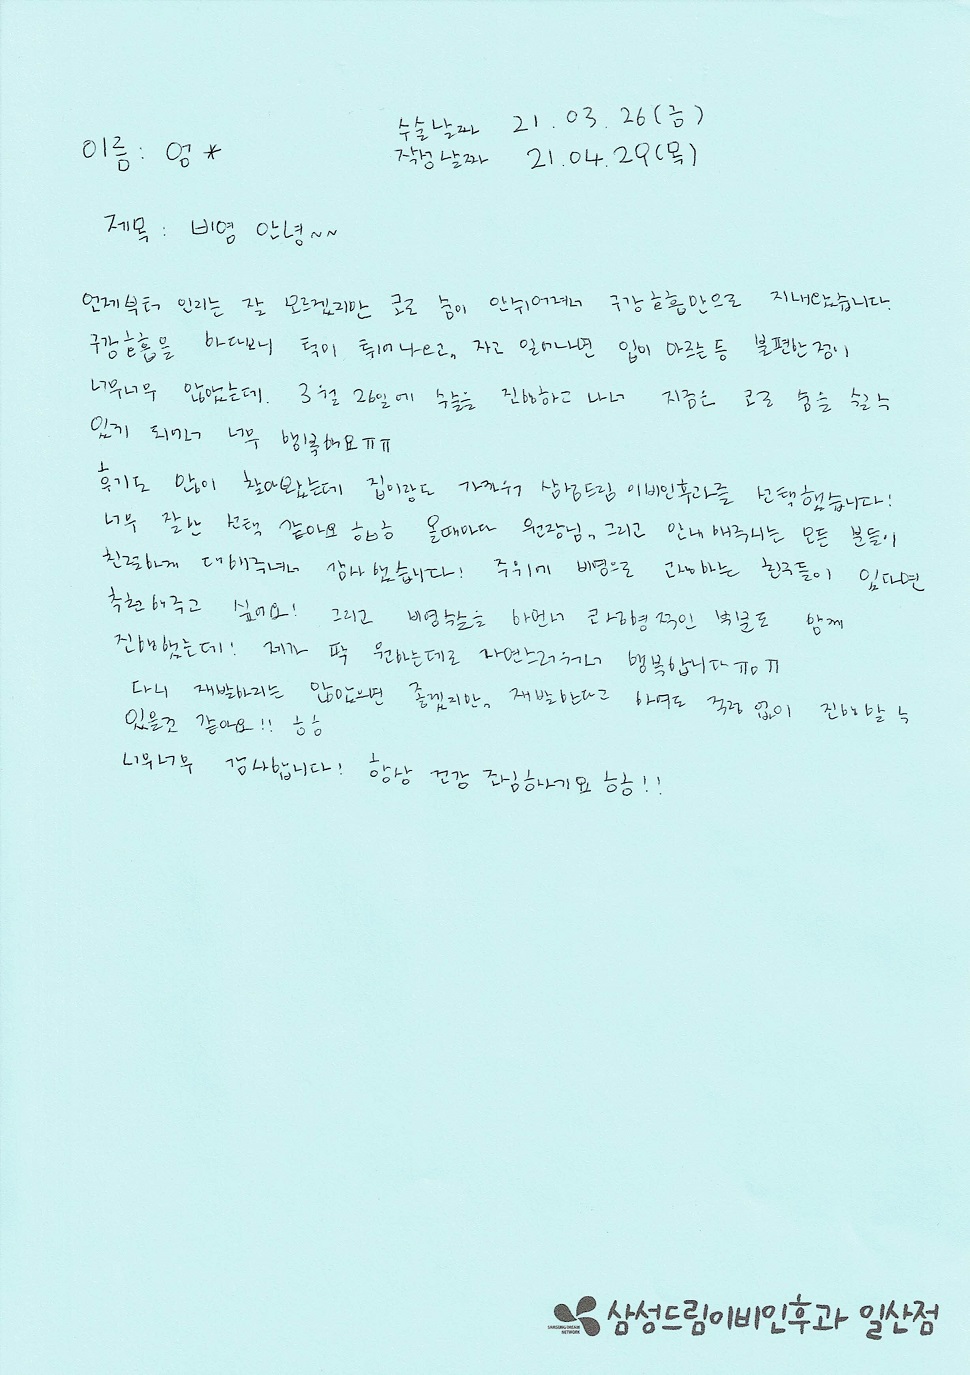 이름: 엄*
수술날짜 21.03.26(금)
작성날짜 21.04.29(목)
제목: 비염 안녕~~
언제부터 인지는 잘 모르겠지만 코로 숨이 안쉬어져서 구강호흡만으로 지내왔습니다.
구강호흡을 하다보니 턱이 튀어나오고, 자고 일어나면 입이 마르는등 불편한점이
너무너무 많았는데. 3월 26일에 수술을 진행하고 나니 지금은 코로 숨을 쉴수
있게 되어서 너무 행복해요ㅠㅠ
후기도 많이 찾아봤는데 집이랑도 가까워서 삼성드림이비인후과를 선택했습니다!
너무 잘한 선택 같아요 ㅎㅎ 올때마다 원장님, 그리고 안내해주시는 모든 분들이
친절하게 대해주셔서 감사했습니다! 주위에 비염으로 고생하는 친구들이 있다면
추천해주고 싶어요! 그리고 비염수술을 하면서 코성형적인 부분도 함께
진행했는데! 제가 딱 원하는데로 자연스러워서 행복합니다ㅠㅇㅠ
다시 재발하지는 않았으면 좋겠지만, 재발한다고 하여도 걱정 없이 진행할 수
있을것 같아요!! ㅎㅎ
너무너무 감사합니다! 항상 건강 조심하시기요 ㅎㅎ!!
SAMSUNG DREAM
NETWORK
삼성드림이비인후과 일산점